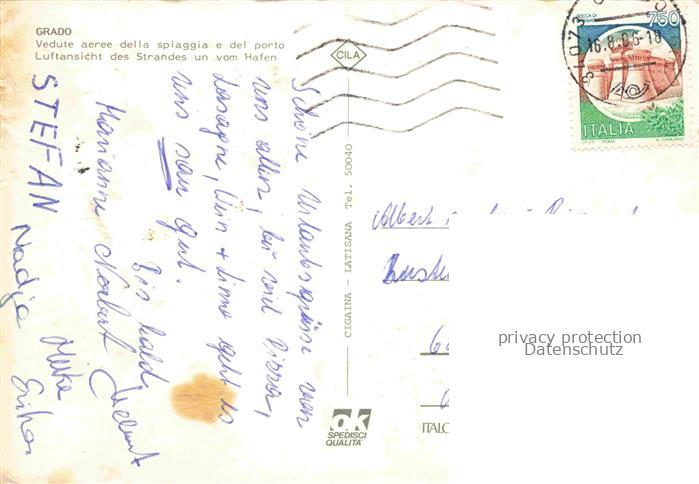 GRADO
Vedute aeree della spiaggia e del porto
Luftansicht des Strandes un vom Hafen
CILA
34073
16.8.86-18
ROCCA DI
750
ITALIA
I.P.Z.S. - ROMA
Schöne Urlaubsgrüsse von
uns allen, bei viel Pizza,
Lasagne, Wein + Limo geht es
uns sau gut.
Bis bald,
Marianne Norbert Helmut
STEFAN
Nadja Heike
Erika
CIGAINA - LATISANA Tel. 50040
Albert
privacy protection
Datenschutz
ok
SPEDISCI
QUALITA'